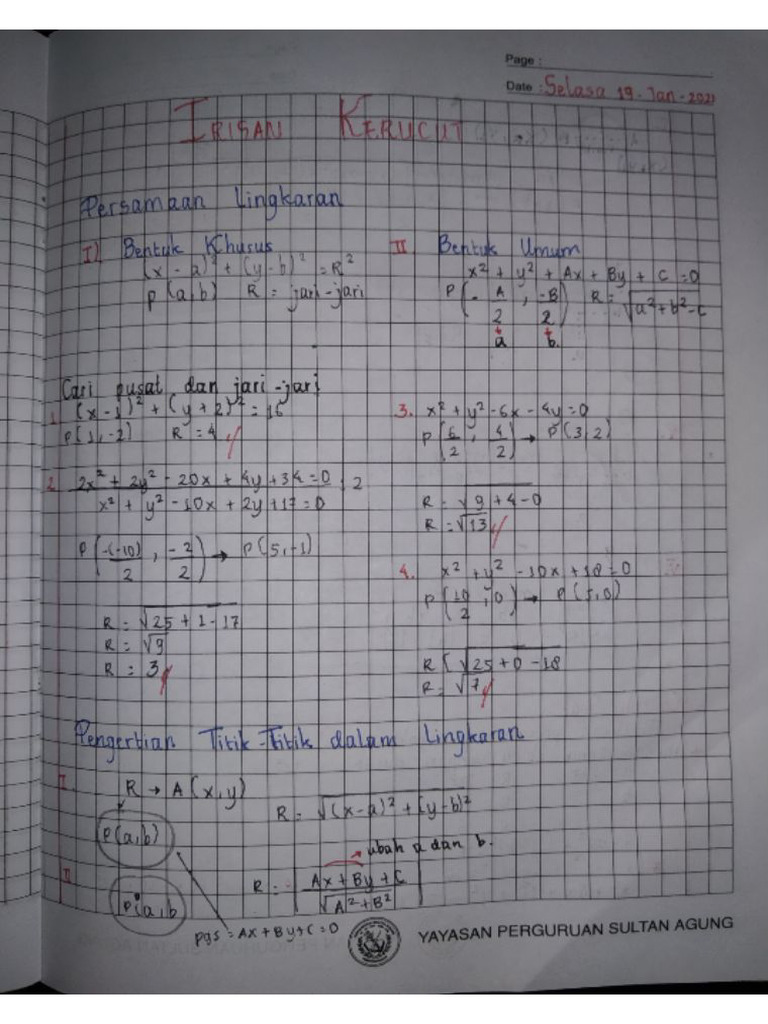 Page :
Date : Selasa 19 - Jan - 2021
IRISAN KERUCUT
Persamaan Lingkaran
I) Bentuk Khusus
(x - a)² + (y - b)² = R²
P(a,b) R = jari-jari
II Bentuk Umum
x² + y² + Ax + By + C = 0
P(-A/2, -B/2) R = √a² + b² - C
a b.
Cari pusat dan jari-jari
1. (x - 1)² + (y + 2)² = 16
P(1, -2) R = 4
2. 2x² + 2y² - 20x + 4y + 34 = 0 : 2
x² + y² - 10x + 2y + 17 = 0
P(-(-10)/2, -2/2) → P(5, -1)
R = √25 + 1 - 17
R = √9
R = 3
3. x² + y² - 6x - 4y = 0
P(6/2, 4/2) → P(3,2)
R = √9 + 4 - 0
R = √13
4. x² + y² - 10x + 18 = 0
P(10/2, 0) → P(5,0)
R √25 + 0 - 18
R = √7
Pengertian Titik-Titik dalam Lingkaran
I. R → A(x,y)
P(a,b)
R = √(x-a)² + (y-b)²
→ ubah a dan b.
II
P(a,b
R = |Ax + By + C / √A² + B²|
pgs = Ax + By + C = 0
YAYASAN PERGURUAN SULTAN AGUNG